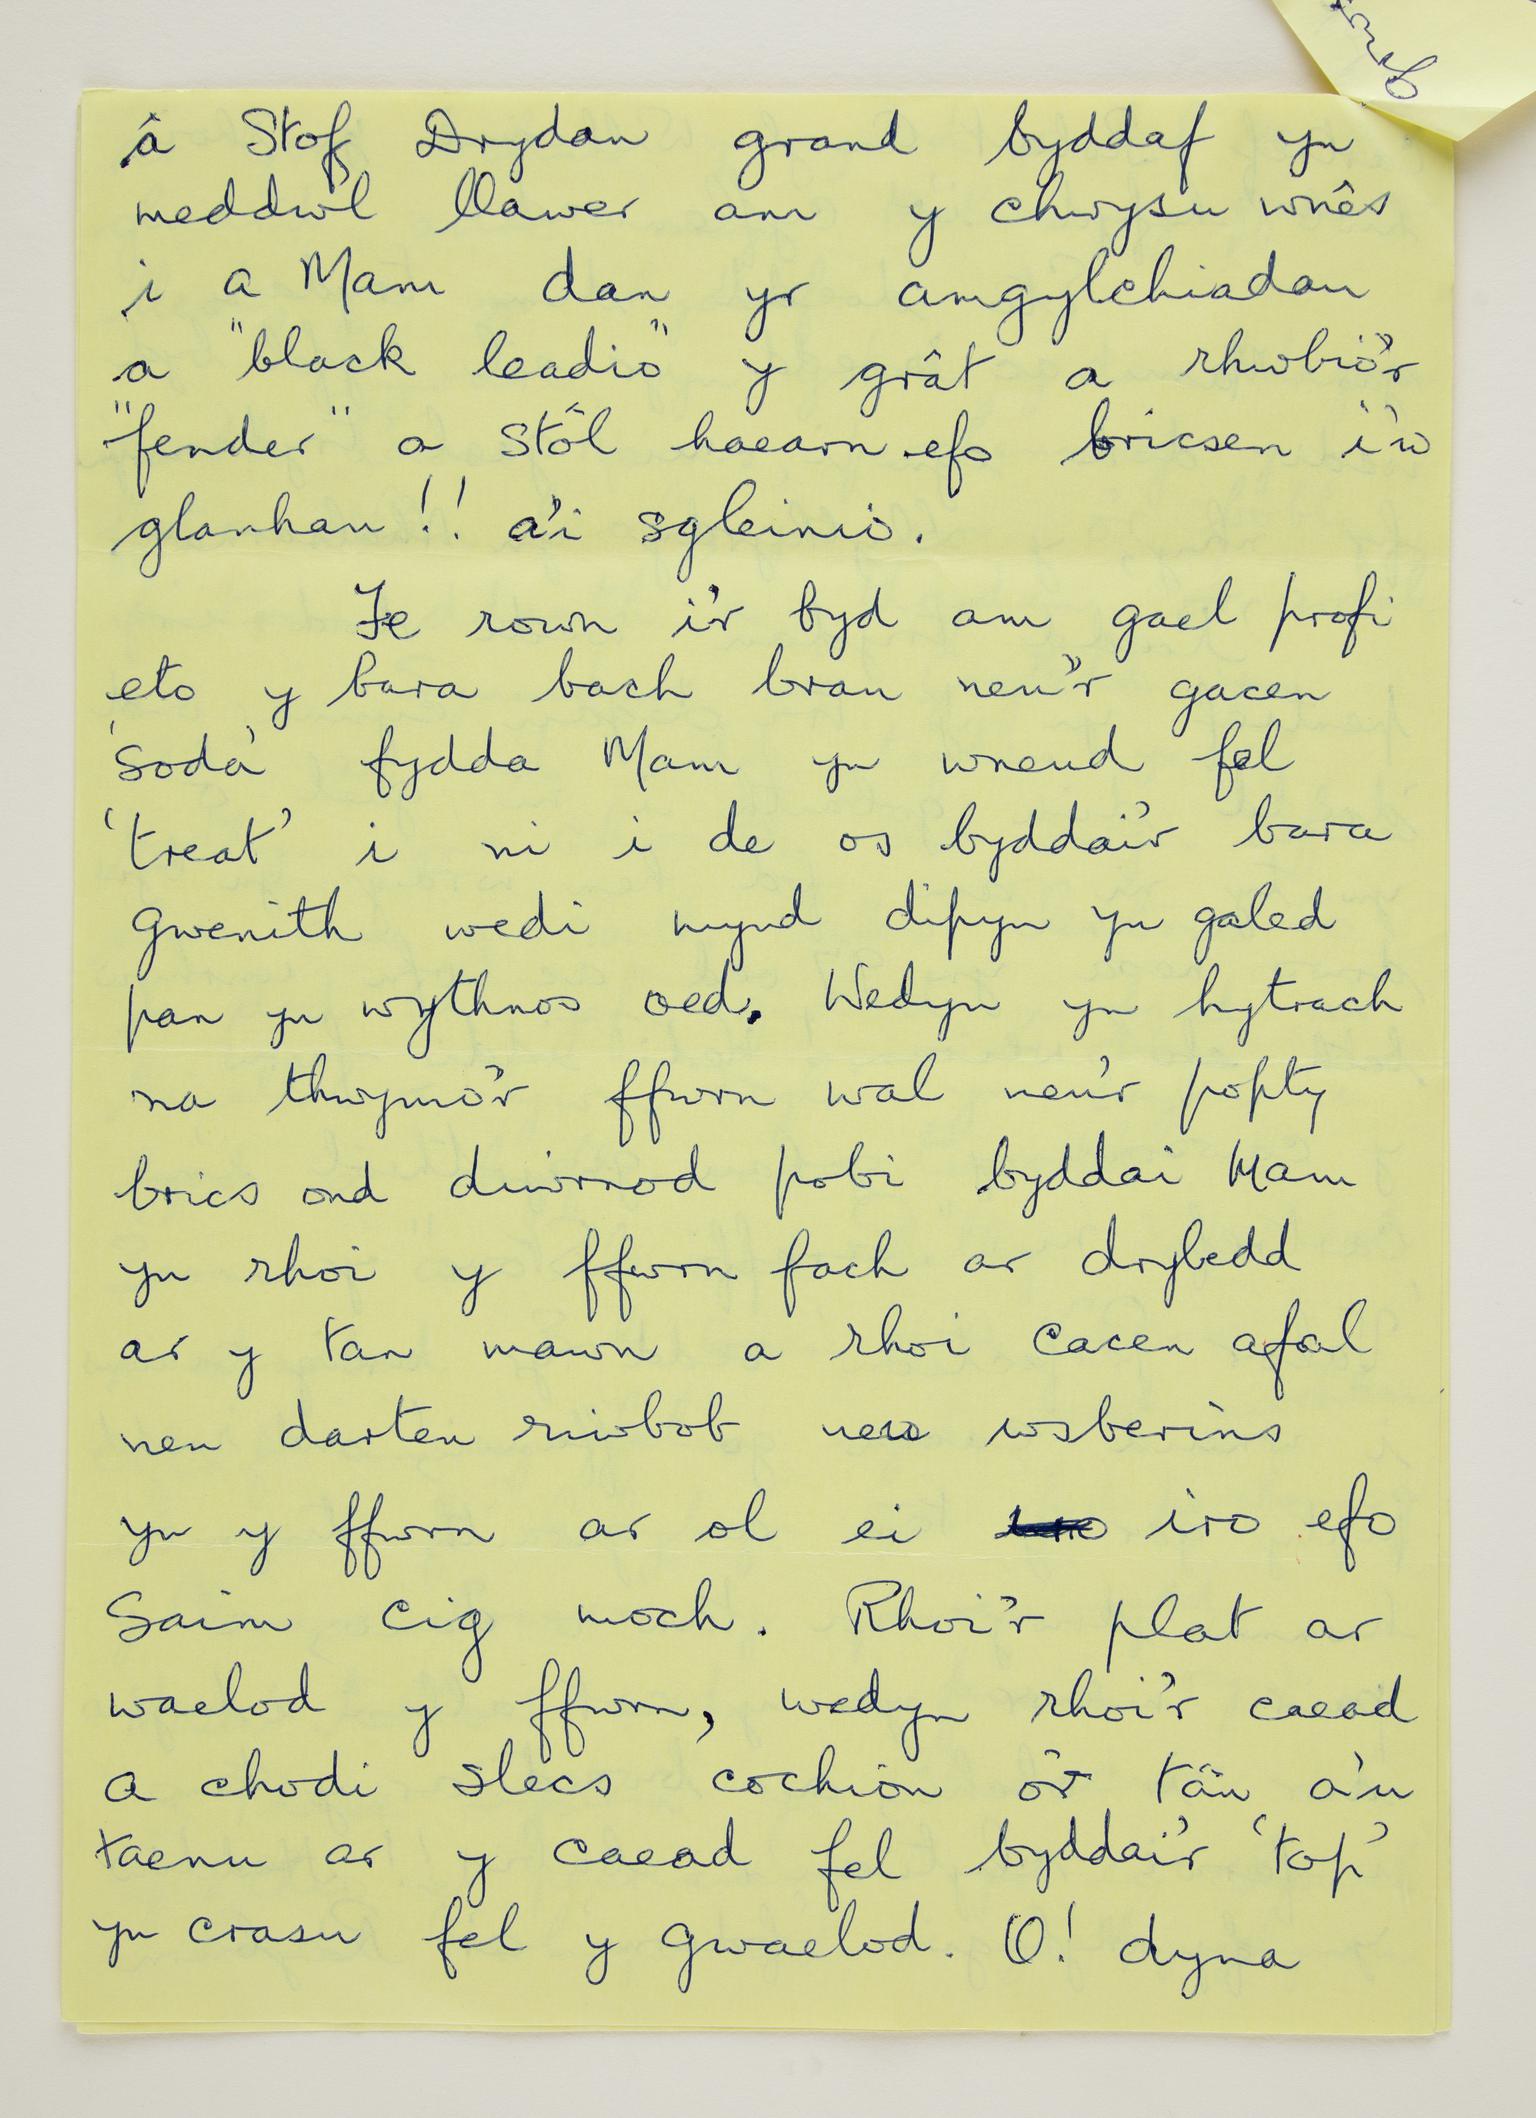 â Stof Drydan grand byddaf yn
meddwl llawer am y chwysu wnês
i a Mam dan yr amgylchiadau
a "black leadio" y grât a rhwbio'r
"fender" a Stôl haearn efo bricsen i'w
glanhau!! a'i sgleinio.
Ie rown i'r byd am gael profi
eto y bara bach bran neu'r gacen
'soda' fydda Mam yn wneud fel
'treat' i ni i de os byddai'r bara
Gwenith wedi mynd dipyn yn galed
pan yn wythnos oed. Wedyn yn hytrach
na thwymo'r ffwrn wal neu'r popty
brics ond diwrnod pobi byddai Mam
yn rhoi y ffwrn fach ar drybedd
ar y tan mawn a rhoi cacen afal
neu darten riwbob neu wsberins
yn y ffwrn ar ol ei iro efo
Saim cig moch. Rhoi'r plat ar
waelod y ffwrn, wedyn rhoi'r caead
a chodi slecs cochion o'r tân a'u
taenu ar y caead fel byddai'r 'top'
yn crasu fel y gwaelod. O! dyna